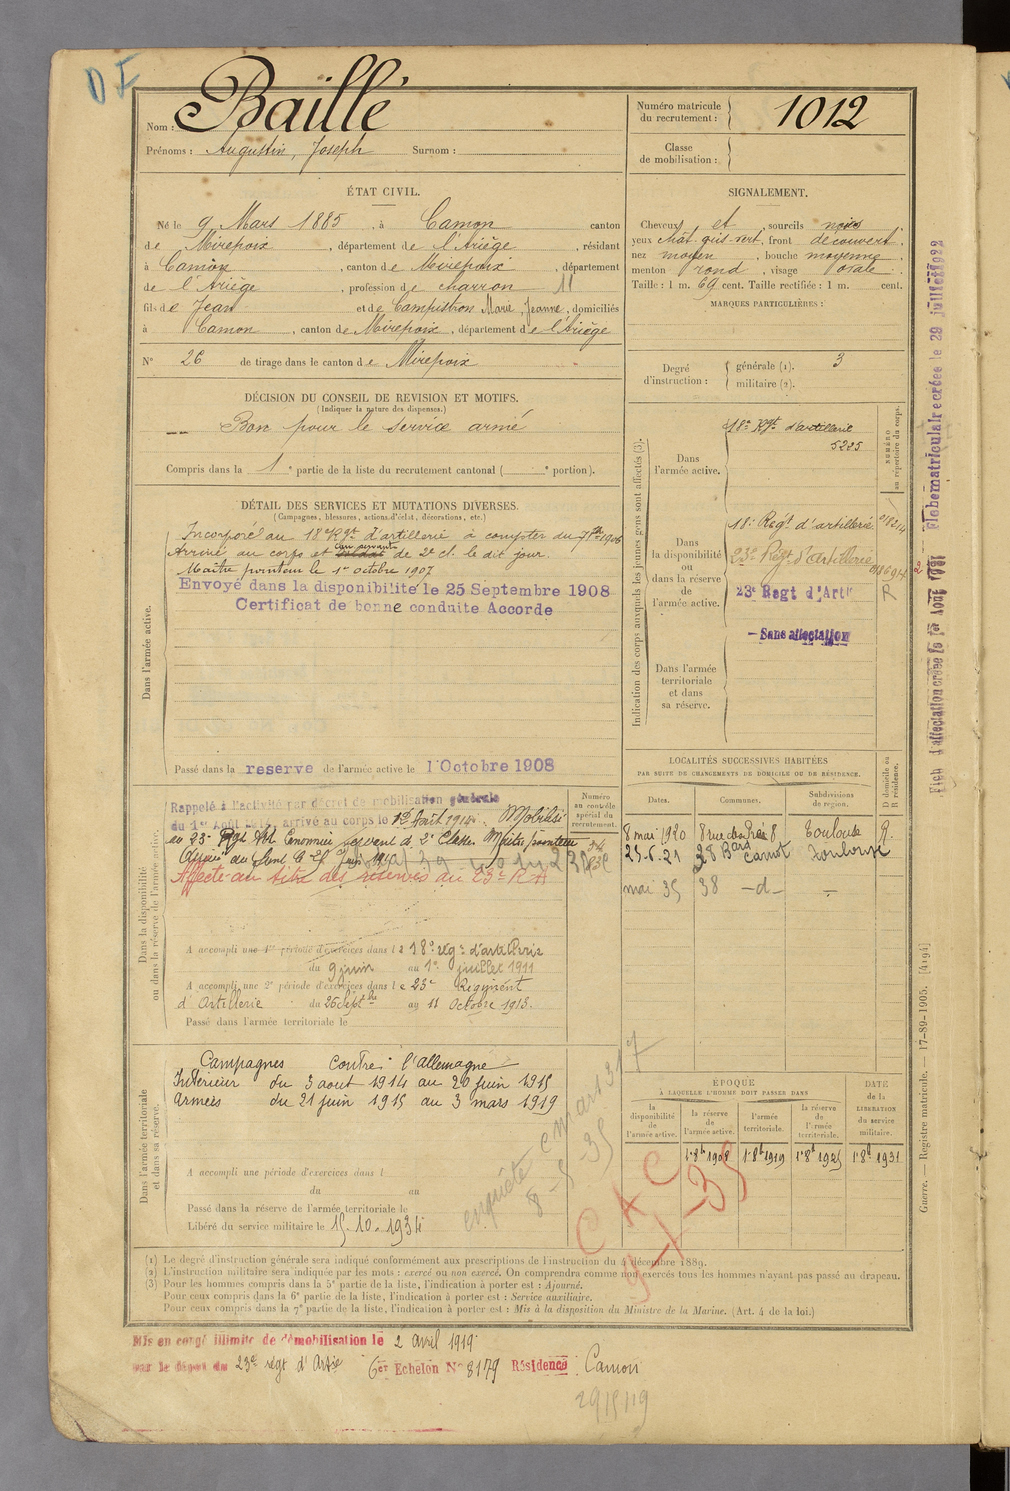 DI
Nom : Baillé
Prénoms : Augustin, Joseph Surnom :
Numéro matricule
du recrutement : 1012
Classe
de mobilisation :
ÉTAT CIVIL.
Né le 9 Mars 1885, à Camon canton
de Mirepoix, département de l'Ariège, résidant
à Camon, canton de Mirepoix, département
de l'Ariège, profession de charron 11
fils de Jean et de Campistron Marie, Jeanne, domiciliés
à Camon, canton de Mirepoix, département de l'Ariège
N° 26 de tirage dans le canton de Mirepoix
SIGNALEMENT.
Cheveux et, sourcils noirs
yeux chât. gris-vert, front découvert,
nez moyen, bouche moyenne,
menton rond, visage ovale.
Taille : 1 m. 69 cent. Taille rectifiée : 1 m. cent.
MARQUES PARTICULIÈRES :
Degré
d'instruction :
générale (1). 3
militaire (2).
DÉCISION DU CONSEIL DE REVISION ET MOTIFS.
(Indiquer la nature des dispenses.)
Bon pour le service armé
Compris dans la 1e partie de la liste du recrutement cantonal ( e portion).
DÉTAIL DES SERVICES ET MUTATIONS DIVERSES.
(Campagnes, blessures, actions d'éclat, décorations, etc.)
Dans l'armée active.
Incorporé au 18e Rgt d'artillerie à compter du 7 8bre 1906
Arrivé au corps et canr servant de 2e cl. le dit jour.
Maître pointeur le 1er octobre 1907
Envoyé dans la disponibilité le 25 Septembre 1908
Certificat de bonne conduite Accorde
Passé dans la reserve de l'armée active le 1 Octobre 1908
Indication des corps auxquels les jeunes gens sont affectés (3).
NUMÉRO
au répertoire du corps.
Dans
l'armée active.
18e Rgt d'artillerie
5225
Dans
la disponibilité
ou
dans la réserve
de
l'armée active.
18e Regt d'artillerie
23e Regt d'Artillerie
23e Regt d'Artie
R
Sans affectation
Dans l'armée
territoriale
et dans
sa réserve.
Dans la disponibilité
ou dans la réserve de l'armée active.
Rappelé à l'activité par décret de mobilisation générale
du 1er Août 1914, arrivé au corps le Août 1914. Mobilisé
au 23e Rgt Art Canonnier servant de 2e Classe Maître pointeur
Affecté au titre des réserves au 23e RA
Numéro
au contrôle
spécial du
recrutement.
A accompli une 1re période d'exercices dans le 18e régt d'artillerie
du 9 juin au 1er juillet 1911
A accompli une 2e période d'exercices dans le 23e Régiment
d'Artillerie du 26 Septbre au 11 Octobre 1913.
Passé dans l'armée territoriale le
LOCALITÉS SUCCESSIVES HABITÉES
PAR SUITE DE CHANGEMENTS DE DOMICILE OU DE RÉSIDENCE.
Dates. Communes. Subdivisions de région. D domicile ou R résidence.
8 mai 1920 8 rue 8 Toulouse R.
25.6.21 28 Bard Carnot Toulouse
mai 35 38 -d- -
Dans l'armée territoriale
et dans sa réserve.
Campagnes contre l'allemagne
Intérieur du 3 aout 1914 au 20 juin 1915
Armées du 21 juin 1915 au 3 mars 1919
A accompli une période d'exercices dans l
du au
Passé dans la réserve de l'armée territoriale le
Libéré du service militaire le 15.10.1934
enquête
8-5 35
CAC
9-1-35
ÉPOQUE
À LAQUELLE L'HOMME DOIT PASSER DANS
DATE
de la
LIBÉRATION
du service
militaire.
la disponibilité de l'armée active. la réserve de l'armée active. l'armée territoriale. la réserve de l'armée territoriale.
1.8b 1908 1.8b 1919 1.8b 1925 1.8b 1931
(1) Le degré d'instruction générale sera indiqué conformément aux prescriptions de l'instruction du 4 décembre 1889.
(2) L'instruction militaire sera indiquée par les mots : exercé ou non exercé. On comprendra comme non exercés tous les hommes n'ayant pas passé au drapeau.
(3) Pour les hommes compris dans la 5e partie de la liste, l'indication à porter est : Ajourné.
Pour ceux compris dans la 6e partie de la liste, l'indication à porter est : Service auxiliaire.
Pour ceux compris dans la 7e partie de la liste, l'indication à porter est : Mis à la disposition du Ministre de la Marine. (Art. 4 de la loi.)
Mis en congé illimité de démobilisation le 2 avril 1919
par le dépot du 23e régt d'Artie 6er Echelon N° 8179 Résidence Camon
Guerre. — Registre matricule. — 17-89-1905. [4194]
Fiche d'affectation créée le 1er Août 1921 Plabematriculairecréée le 29 juillet 1922